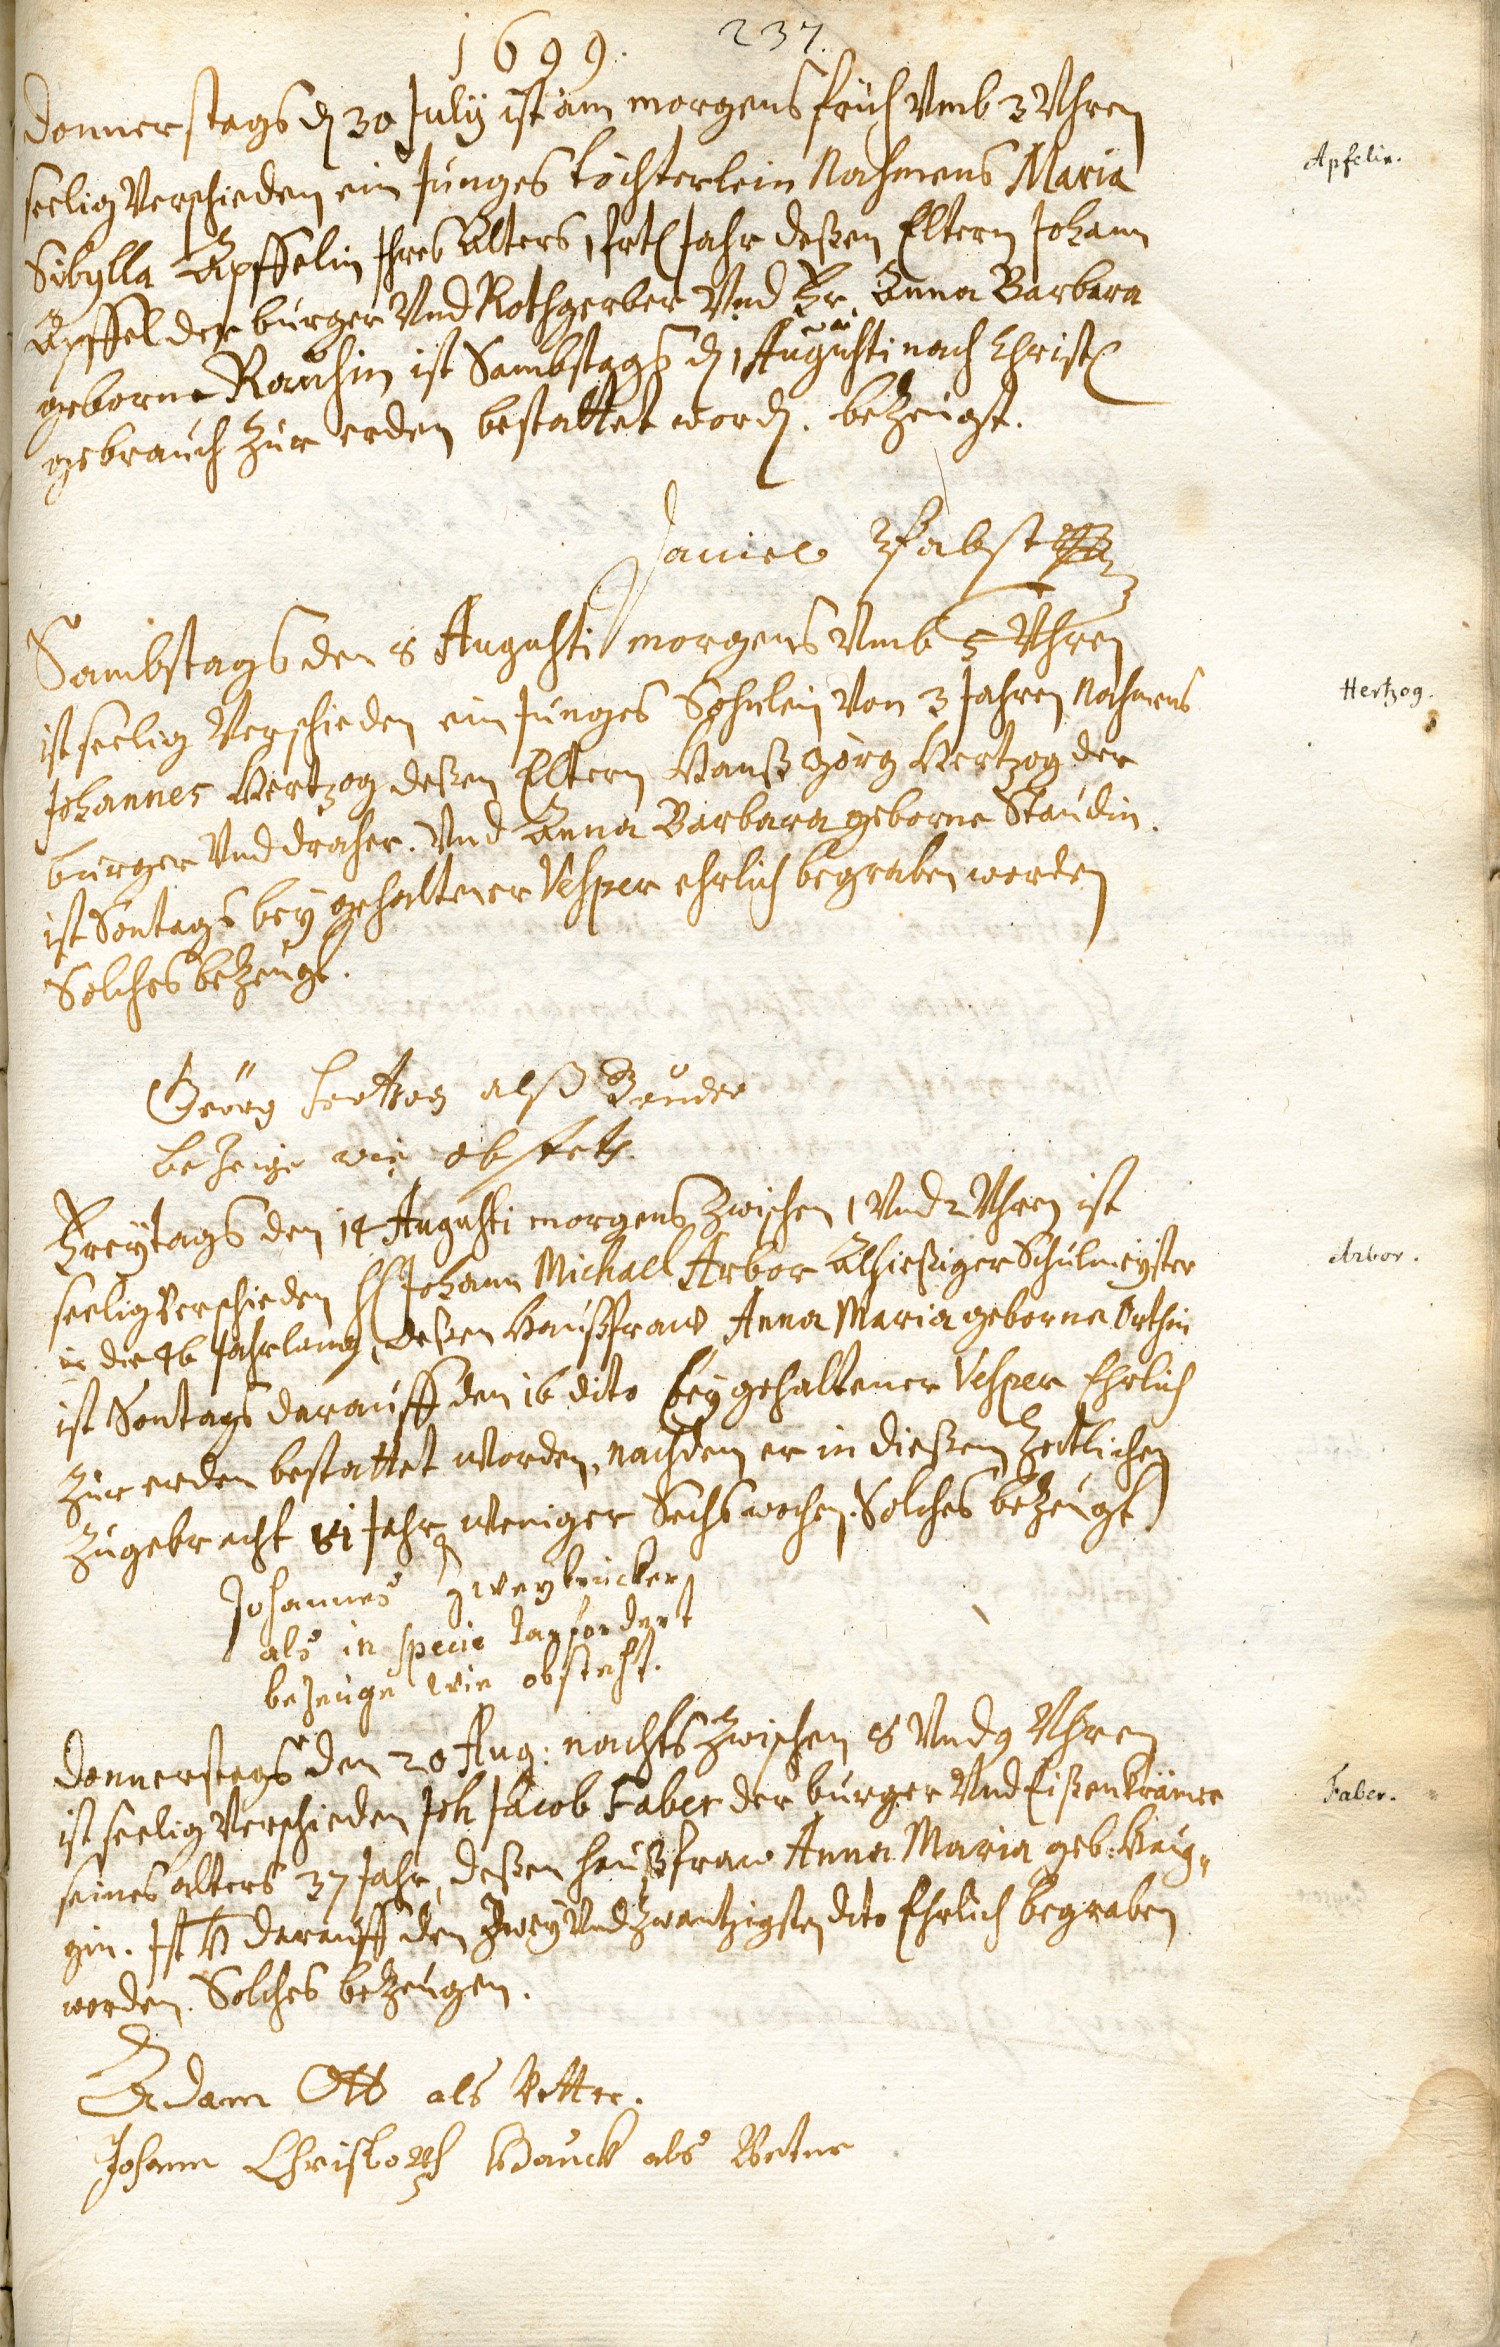 1699. 237.
Donnerstags den 30 July ist am morgens früh Vmb 3 Vhren
Apfelin.
seelig Verschieden ein Junges töchterlein Nahmens Maria
Sibylla Äpffelin Ihres Alters 1 Jahr deßen Eltern Johann
Äpffel der bürger Vnd Rothgerber Vnd Fr. Anna Barbara
geborne Rauchin ist Sambstags den 1 Augusti nach Christl
gebrauch zur erden bestattet word. bezeugt.
Daniel Pfabst
Sambstags den 8 Augusti morgens Vmb 5 Vhren
Hertzog.
ist seelig Verschieden ein Junges Söhnlein Von 3 Jahren Nahmens
Johannes Hertzog deßen Eltern Hanß Görg Hertzog der
bürger Vnd dreher. Vnd Anna Barbara geborne Staudin.
ist Sontags bey gehaltener Vesper ehrlich begraben worden
Solches bezeugt.
Geörg Hertzog alß Bruder
bezeige wie obsteth.
Freytags den 14 Augusti morgens Zwischen 1 Vnd 2 Vhren ist
Arbor.
seelig Verschieden H Johann Michael Arbor Alhießiger Schulmeyster
in die 46 Jahrlang, deßen Haußfraw Anna Maria geborne Orthin
ist Sontags darauff den 16 dito bey gehaltener Vesper Ehrlich
zur erden bestattet Worden, nachdem er in dießem Zeitlichen
zugebracht 81 Jahr weniger Sechs wochen. Solches bezeugt
Johannes Zweybrücker
als in specie
bezeuge wie obsteht.
Donnerstags den 20 Aug: nachts Zwischen 8 Vnd 9 Vhren
Faber.
ist seelig Verschieden Joh Jacob Faber der bürger Vnd Eißenkrämer
seines alters 37 Jahr, deßen haußfraw Anna Maria geb: Haug„
gin. Ist ♄ darauff den Zwey Vnd Zwantzigsten dito Ehrlich begraben
worden. Solches bezeugen.
Adam Ott als Vetter.
Johann Christoph Hauck als Vetter